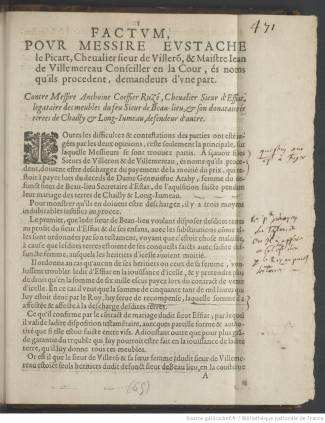 471
FACTVM,
POVR MESSIRE EVSTACHE
le Picart, Cheualier sieur de Villerõ, & Maistre Iean
de Villemereau Conseiller en la Cour, és noms
qu'ils procedent, demandeurs d'vne part.
Contre Messire Anthoine Coeffier Ruzé, Cheualier Sieur d'Effiat,
legataire des meubles du feu Sieur de Beau-lieu, & son donataire des
terres de Chailly & Long-Iumeau, defendeur d'autre.
TOutes les difficultez & contestations des parties ont esté iu-
gées par les deux opinions, reste seulement la principale, sur
laquelle Messieurs se sont trouuez partis. A sçauoir si les
Sieurs de Villeron & de Villemereau, és noms qu'ils proce-
dent, doiuent estre deschargez du payement de la moitié du prix, qui re-
stoit à payer lors du decés de Dame Geneuiefue Araby, femme du de-
funct sieur de Beau-lieu Secretaire d'Estat, de l'aquisition faicte pendant
leur mariage des terres de Chailly & Long-Iumeau.
Pour monstrer qu'ils en doiuent estre deschargez, il y a trois moyens
indubitables iustifiez au procez.
Le premier, que ledit sieur de Beau-lieu voulant disposer desdites terres
au profit du sieur d'Effiat & de ses enfans, auec les substitutions
sont ordonnées par son testament, voyant que c'estoit chose malaisée,
à cause que lesdites terres estoient de ses conquests faicts auec sadite de-
functe femme, ausquels les heritiers d'icelle auoient moitié.
Il ordonna au cas qu'aucun de ses heritiers ou de ceux de sa femme, vou-
lussent troubler ledit d'Effiat en la iouissance d'icelle, & y pretendre plus
de droit qu'en la somme de six mille escus payez lors du contract de vente
d'icelle. En ce cas il veut que la somme de cinquante tant de mil liures qui
luy estoit deuë par le Roy, luy serue de recompense, laquelle somme il a
affectée & affecte à la descharge desdites terres.
Ce qu'il confirme par le contract de mariage dudit sieur Effiat, par lequel
il vouloit ladite disposition testamentaire, auec pareille force & autho-
rité que si elle estoit faicte entre vifs. Adioustant outre que pour plus gran-
de garantie du trouble qui luy pourroit estre fait en la iouissance de ladite
terre, qu'il luy donne tous ces meubles.
Or est il que le sieur de Villerõ & sa sœur femme dudit sieur de Ville-
mereau estoient seuls heritiers dudit defunct sieur de Beau-lieu, en la coustume
A
(65)
Source gallica.bnf.fr / Bibliothèque nationale de France